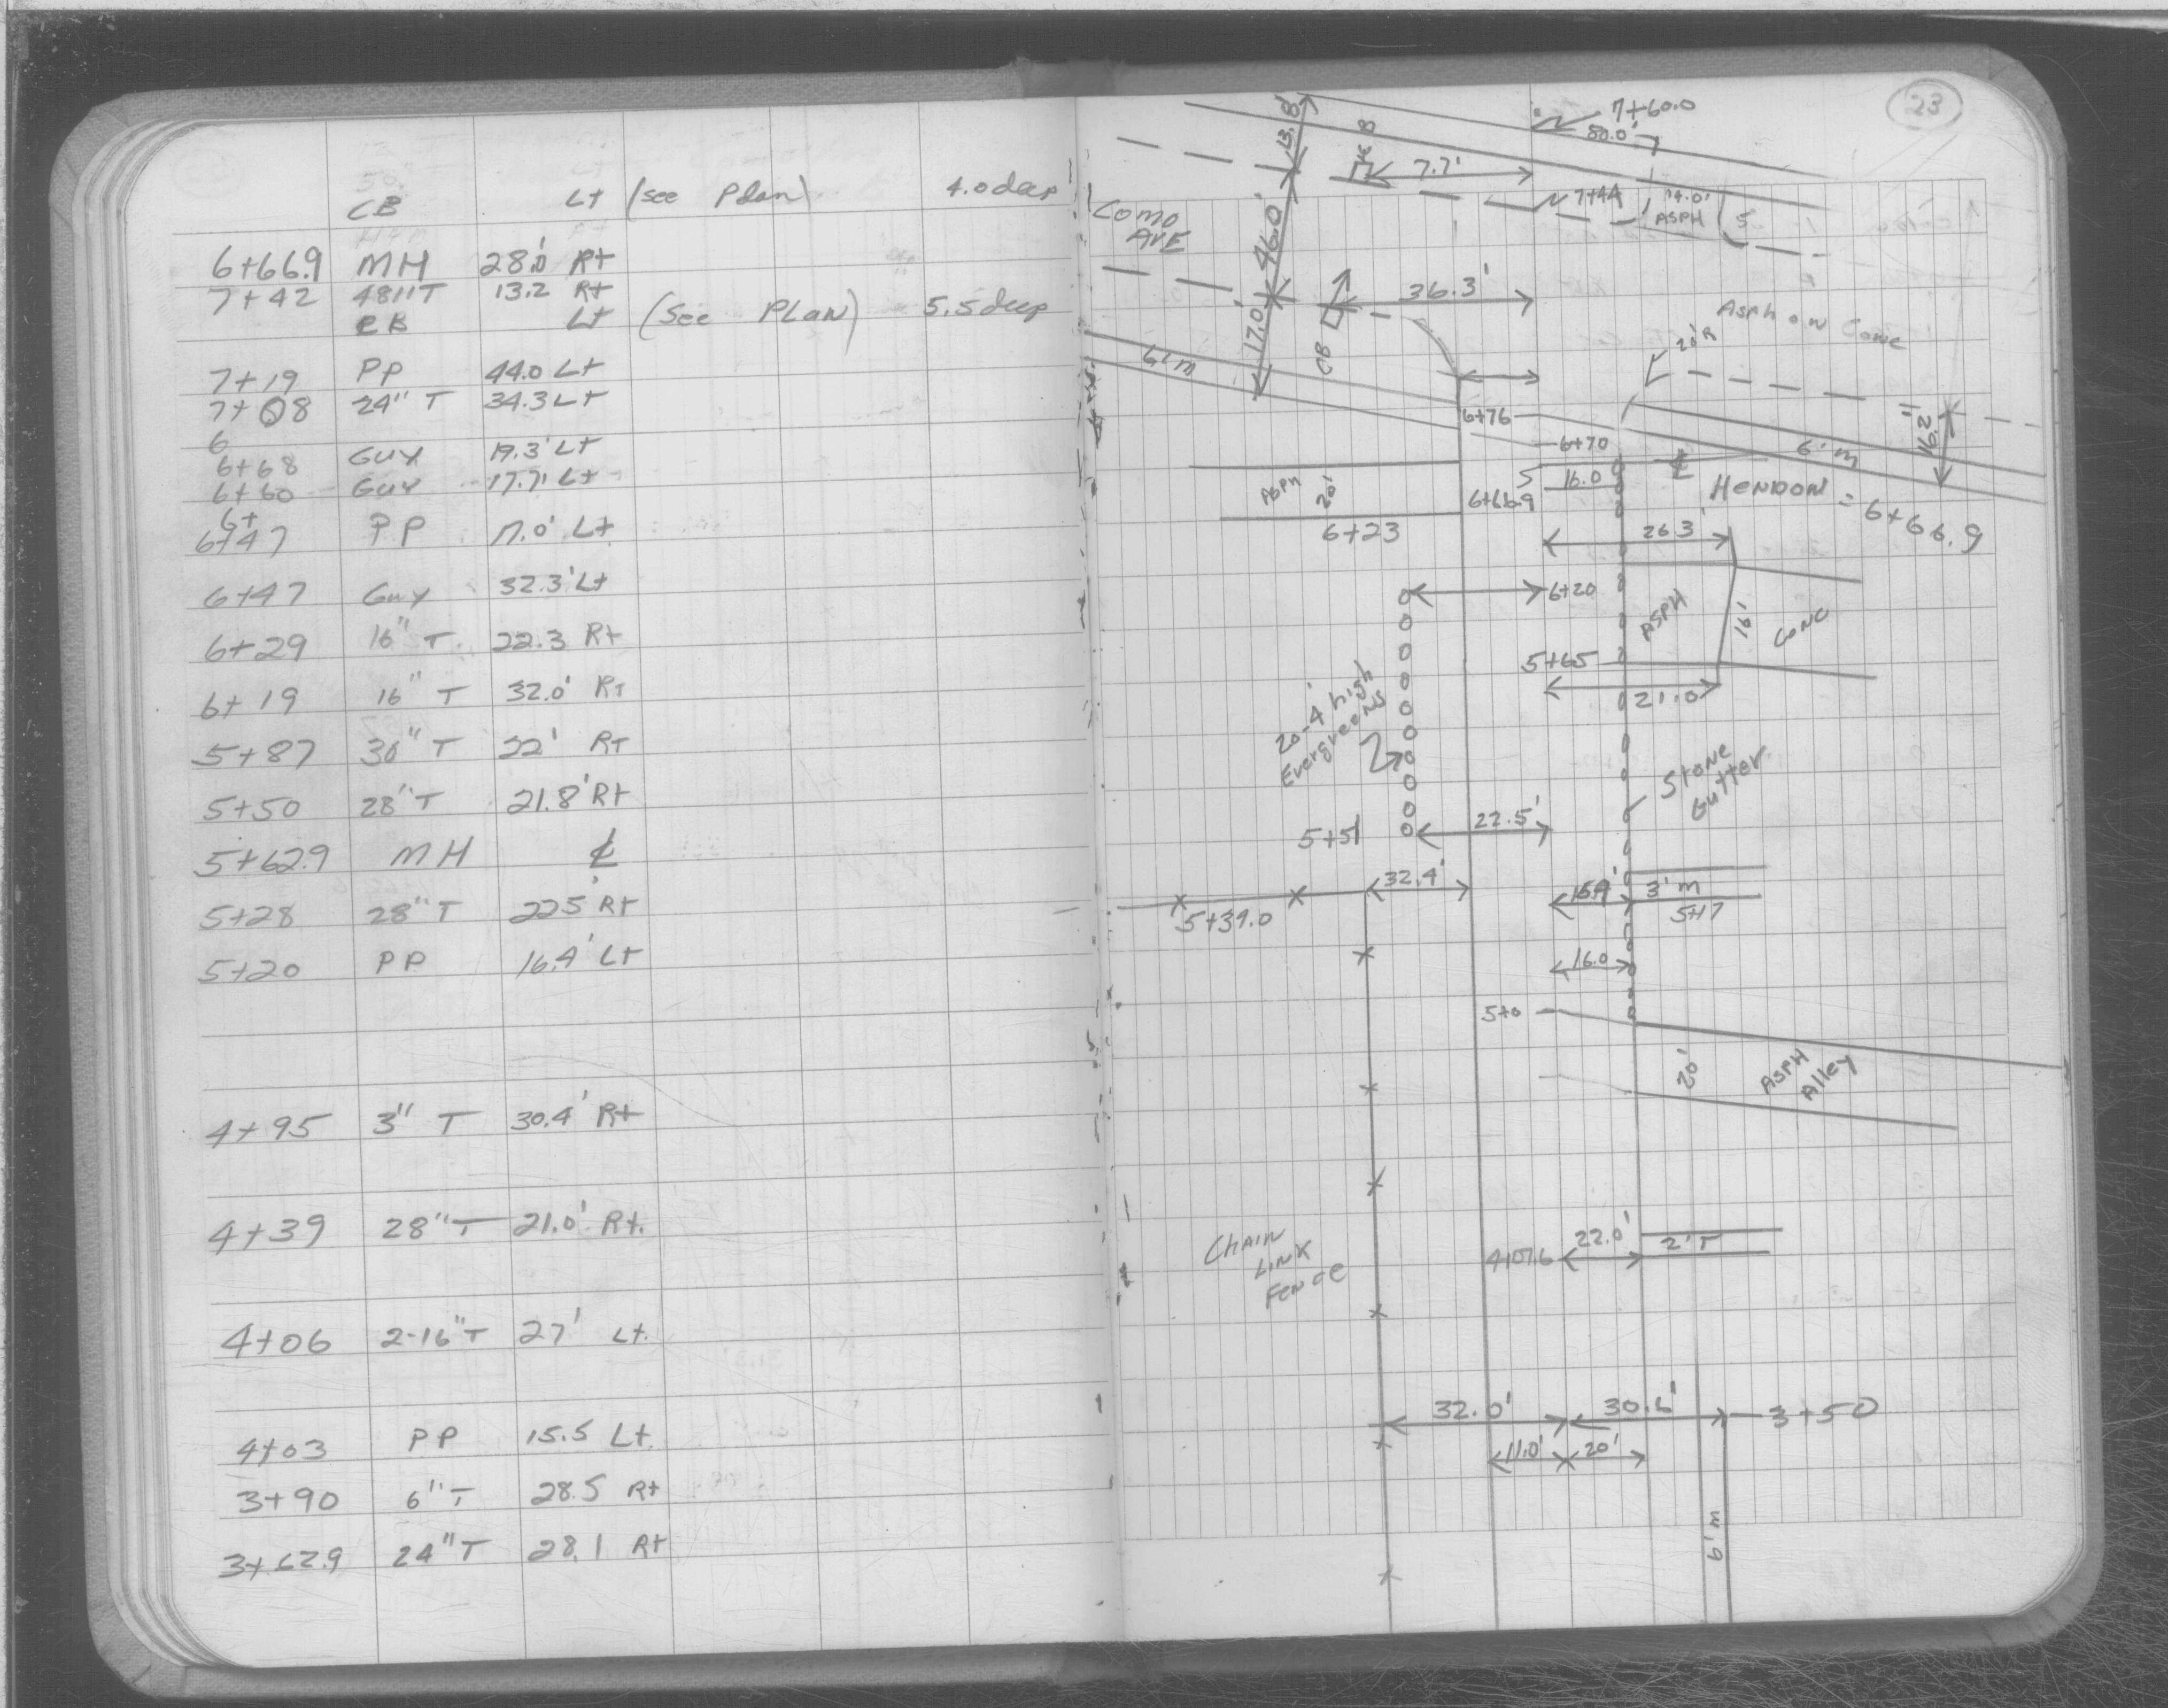 CB Lt (see Plan) 4.0 deep
6+66.9 MH 28.0 Rt
7+42 48"T 13.2 Rt
CB Lt (See PLAN) 5.5 deep
7+19 PP 44.0 Lt
7+08 24" T 34.3 Lt
6
6+68 Guy 19.3' Lt
6+60 Guy 17.7' Lt
6+
6+47 PP 17.0' Lt
6+47 Guy 32.3' Lt
6+29 16" T 22.3 Rt
6+19 16" T 32.0' RT
5+87 30" T 22' RT
5+50 28" T 21.8' Rt
5+62.9 MH ℄
5+28 28" T 22.5' Rt
5+20 PP 16.4' Lt
4+95 3" T 30.4' Rt
4+39 28" T 21.0' Rt.
4+06 2-16" T 27' Lt.
4+03 PP 15.5 Lt.
3+90 6" T 28.5 Rt
3+62.9 24" T 28.1 Rt
23
7+60.0
80.0'
13.8'
7.7'
7+44
14.0'
ASPH
5
Como
AvE
46.0'
36.3'
17.0'
CB
6' m
Asph on Conc
20'R
6+76
6+70
16.2'
6' m
5
16.0
℄
HENDON = 6+66.9
ASPH
20'
6+66.9
6+23
26.3'
6+20
ASPH
16'
CONC
5+65
21.0'
20-4' high
Evergreens
Stone
Gutter
5+51
22.5'
32.4'
3' m
5+17
5+39.0
16.0
5+0
20'
ASPH
Alley
CHAIN
LINK
FENCE
22.0'
2' T
32.0'
30.6'
3+50
11.0'
20'
6' m